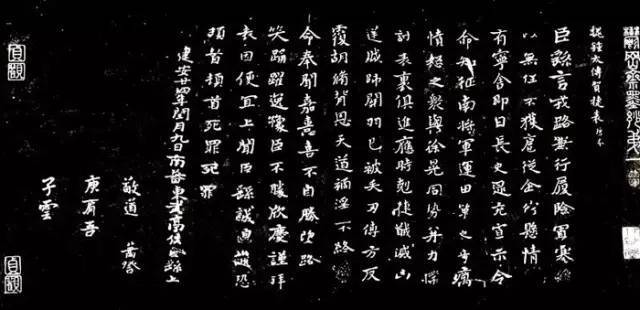 魏鍾太傅賀捷表
臣繇言戎路兼行履險冒寒臣
以無任不獲扈從企佇懸情無
有寧舍即日長史逯充宣示令
命知征南將軍運田單之奇厲
憤怒之衆與徐晃同勢并力撲
討表裏俱進應時剋捷馘滅凶
逆賊帥關羽已被矢刃傅方反
覆胡脩背恩天道禍淫不終厥
命奉聞嘉憙喜不自勝望路載
笑踊躍逸豫臣不勝欣慶謹拜
表因便宜上聞臣繇誠皇誠恐
頓首頓首死罪死罪
建安廿四年閏月九日南蕃東武亭侯臣繇上
敬道
庾肩吾
子雲
貞觀
貞觀